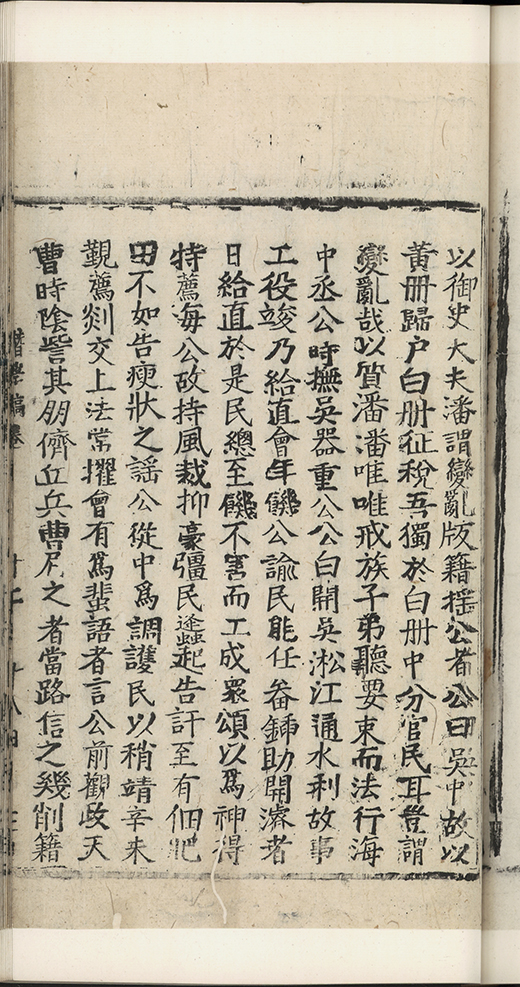 以御史大夫潘謂變亂版籍搖公者公曰吳中故以
黃册歸户白册征稅吾獨於白册中分官民耳豈謂
變亂哉以質潘潘唯唯戒族子弟聽要束而法行海
中丞公時撫吳器重公公白開吳淞江通水利故事
工役竣乃給直會年饑公諭民能任畚鍤助開濬者
日給直於是民總至饑不害而工成衆頌以爲神得
特薦海公故持風裁抑豪彊民蠭起告訐至有佃肥
田不如告瘦狀之謡公從中爲調護民以稍靖辛未
覲薦剡交上法常擢會有爲蜚語者言公前觀政天
曹時陰訾其朋儕丘兵曹凥之者當路信之幾削籍
稿卷